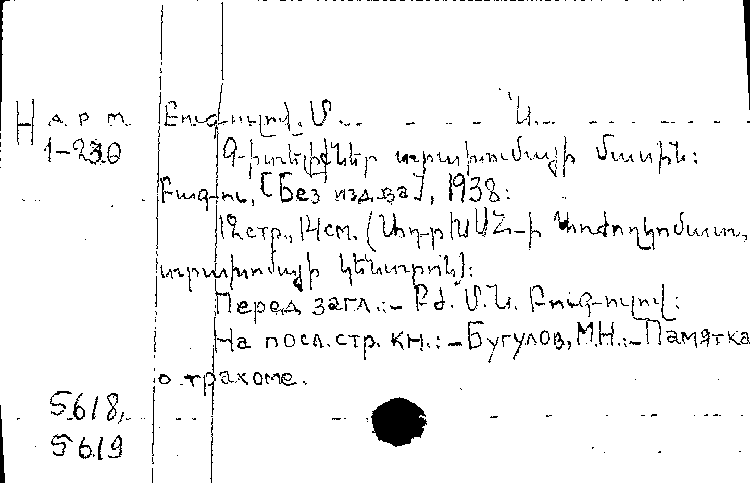 Н арм. Բուգուլով. Մ. Ն.
1-230 Գիտելիքներ տրախոմայի մասին:
Բագու, [Без изд-ва], 1938:
12 стр., 14 см. (Ադր ԽՍՍՀ-ի Առժողկոմատ,
տրախոմայի կենտրոն):
Перед загл.:- Բժ. Մ.Ն. Բուգուլով:
На посл. стр. кн.: - Бугулов, М.Н.:- Памятка
о трахоме.
5618,
5619